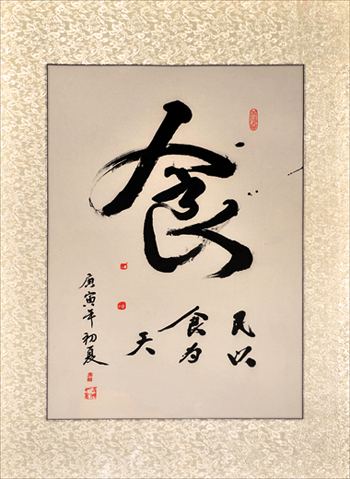 食
民以
食为
天
庚寅年初夏